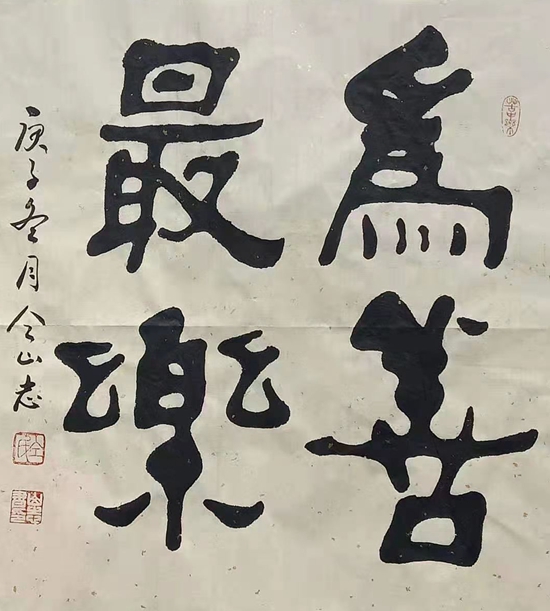 為善
最樂
庚子冬月仝山志